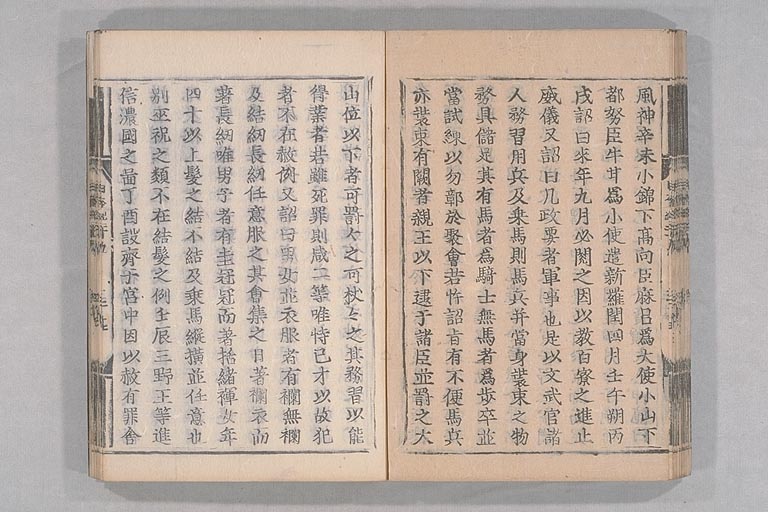 風神辛未小錦下髙向臣麻呂爲大使小山下
都努臣牛甘爲小使遣新羅閏四月壬午朔丙
戌詔曰来年九月必閲之因以教百寮之進止
威儀又詔曰凡政要者軍事也是以文武官諸
人務習用兵及乗馬則馬兵并當身装束之物
務具儲足其有馬者爲騎士無馬者爲歩卒並
當試練以勿鄣於聚會若忤詔旨有不便馬兵
亦装束有闕者親王以下逮于諸臣並罰之大
山位以下者可罰々之可杖々之其務習以能
得業者若雖死罪則咸二等唯恃己才以故犯
者不在赦例又詔曰男女並衣服者有襴無襴
及結紐長紐任意服之其會集之日著襴衣而
著長紐唯男子者有圭冠冠而著括緒褌女年
四十以上髮之結不結及乗馬縱横並任意也
別巫祝之類不在結髮之例壬辰三野王等進
信濃國之啚丁酉設齊于宮中因以赦有罪舎